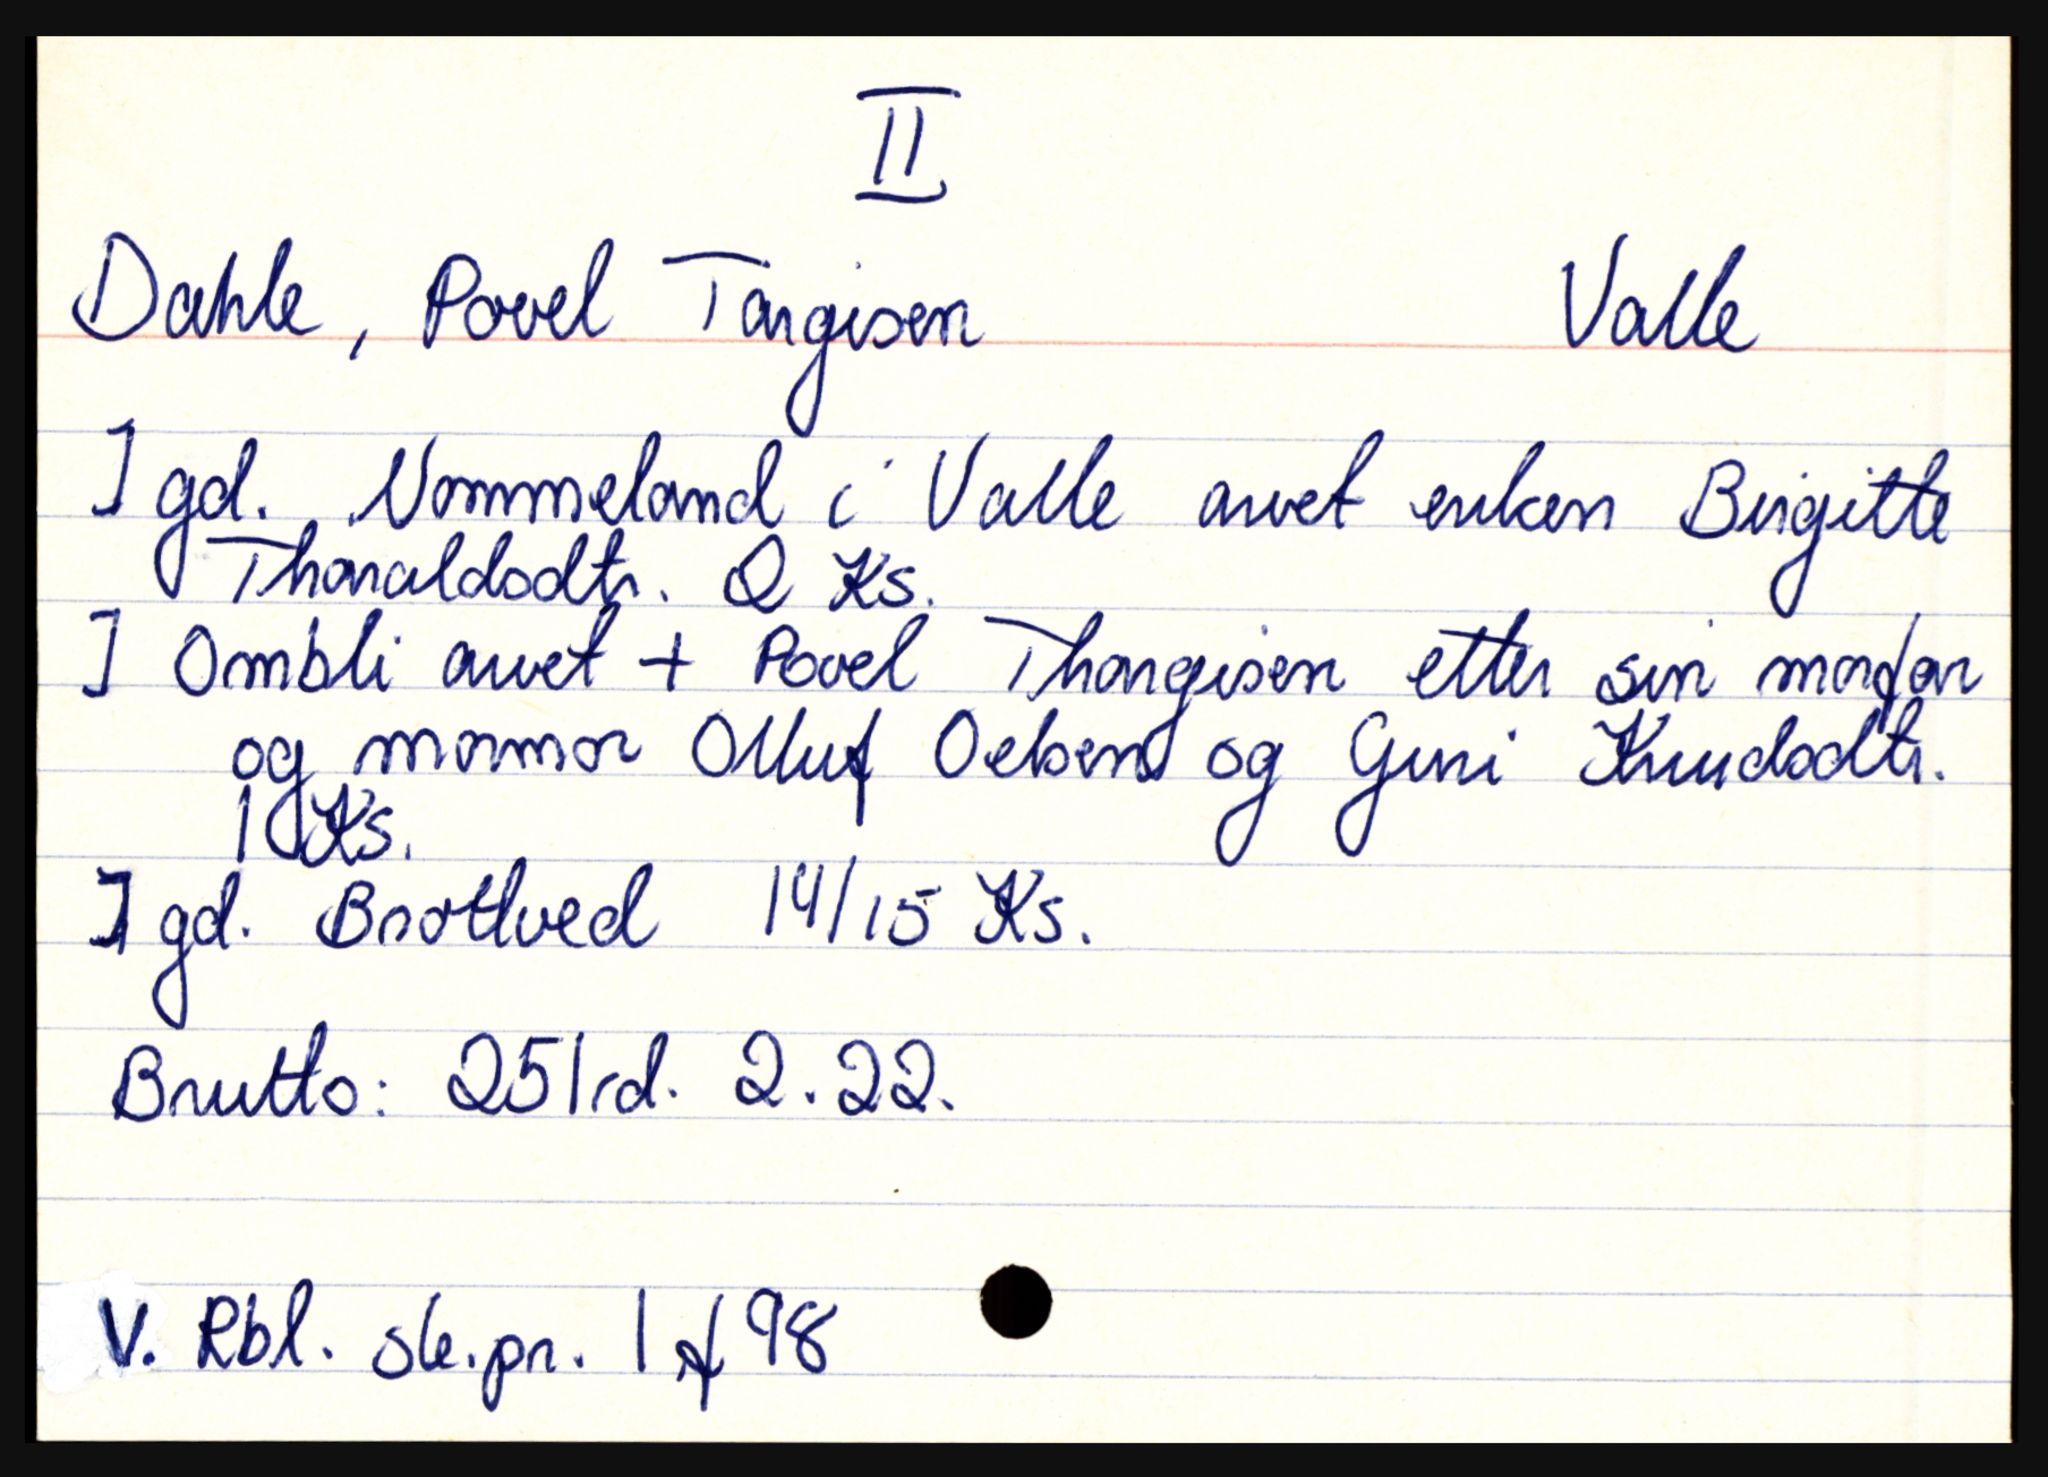 II
Dahle, Povel Targisen Valle
I gd. Nommeland i Valle arvet enken Birgitte
Tharaldsdtr. 2 Ks.
I Ombli arvet + Povel Thargisen etter sin morfar
og mormor Olluf Oelsen og Guni Knudsdtr.
1 Ks.
I gd. Brottved 14/15 Ks.
Brutto: 251 rd. 2.22.
V. Rbl. sk.pr. 1 f 98